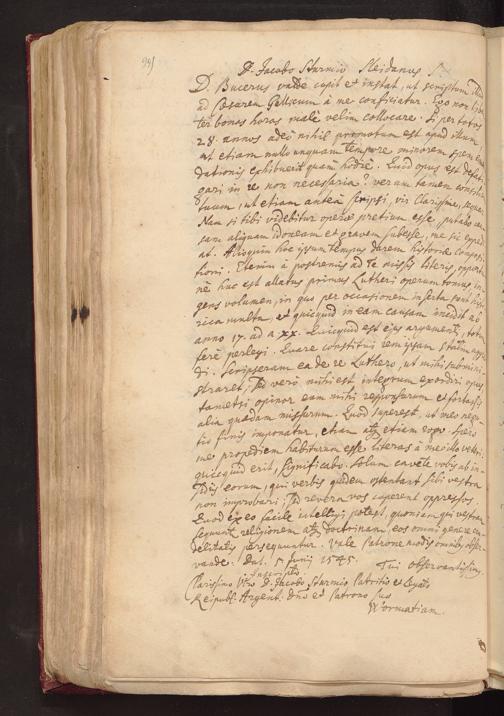 D. Jacobo Sturmio Sleidanus S.
D. Bucerus valde cupit et instat, ut scriptum
ad Cæsarem Gallicum à me conficiatur. Ego non
ter bonas horas malè velim collocare. Si per totos
28. annos adeo nihil promotum est apud illum,
ut etiam nullo unquam tempore minorem spem
dationis exhibuerit quàm hodiè. Quid opus est defati
gari in re non necessaria? verum tamen
tuum, ut etiam anteà scripsi, vir Clarissime, sequar.
Nam si tibi videbitur operæ pretium esse, putabo cau
sam aliquam idoneam et gravem subesse,
at. Alioquin hoc ipsum tempus darem historiæ composi
tioni. Etenim à postremis ad Te missis literis, opportu
nè huc est allatus primus Lutheri operum tomus, in
gens volumen, in quo per occasionem inserta sunt histo
rica multa, et quicquid in eam causam incidit ab
anno 17. ad a. XX. Quicquid est ejus argumenti, totum
ferè perlegi. Quare constitui rem ipsam statim aggre
di. Scripseram ea de re Luthero, ut mihi submini
straret, sed verò mihi est integrum exordiri opus
tametsi opinor eam mihi responsurum et fortassis
alia quædam missurum. Quod superest, ut
tio finis imponatur, etiam atque etiam rogo. Spero
me propediem habiturum esse literas à
quicquid erit, significabo. Solum cavete vobis ab in
sidiis eorum, qui verbis quidem ostentant sibi vestra
non improbari, sed revera vos cuperent oppressos
Quod ex eo facile intelligi potest, quoniam qui vestram
sequuntur religionem atque doctrinam, eos omni genere cru
delitatis persequuntur. Vale Patrone modis omnibus obser
vande. Dat. 5 Junij 1545. Tui observantissimus
Inscriptio.
Clarissimo Viro D. Jacobo Sturmio Patritio et Legato
Reipubl. Argent. Dno et Patrono suo
Wormatiam.